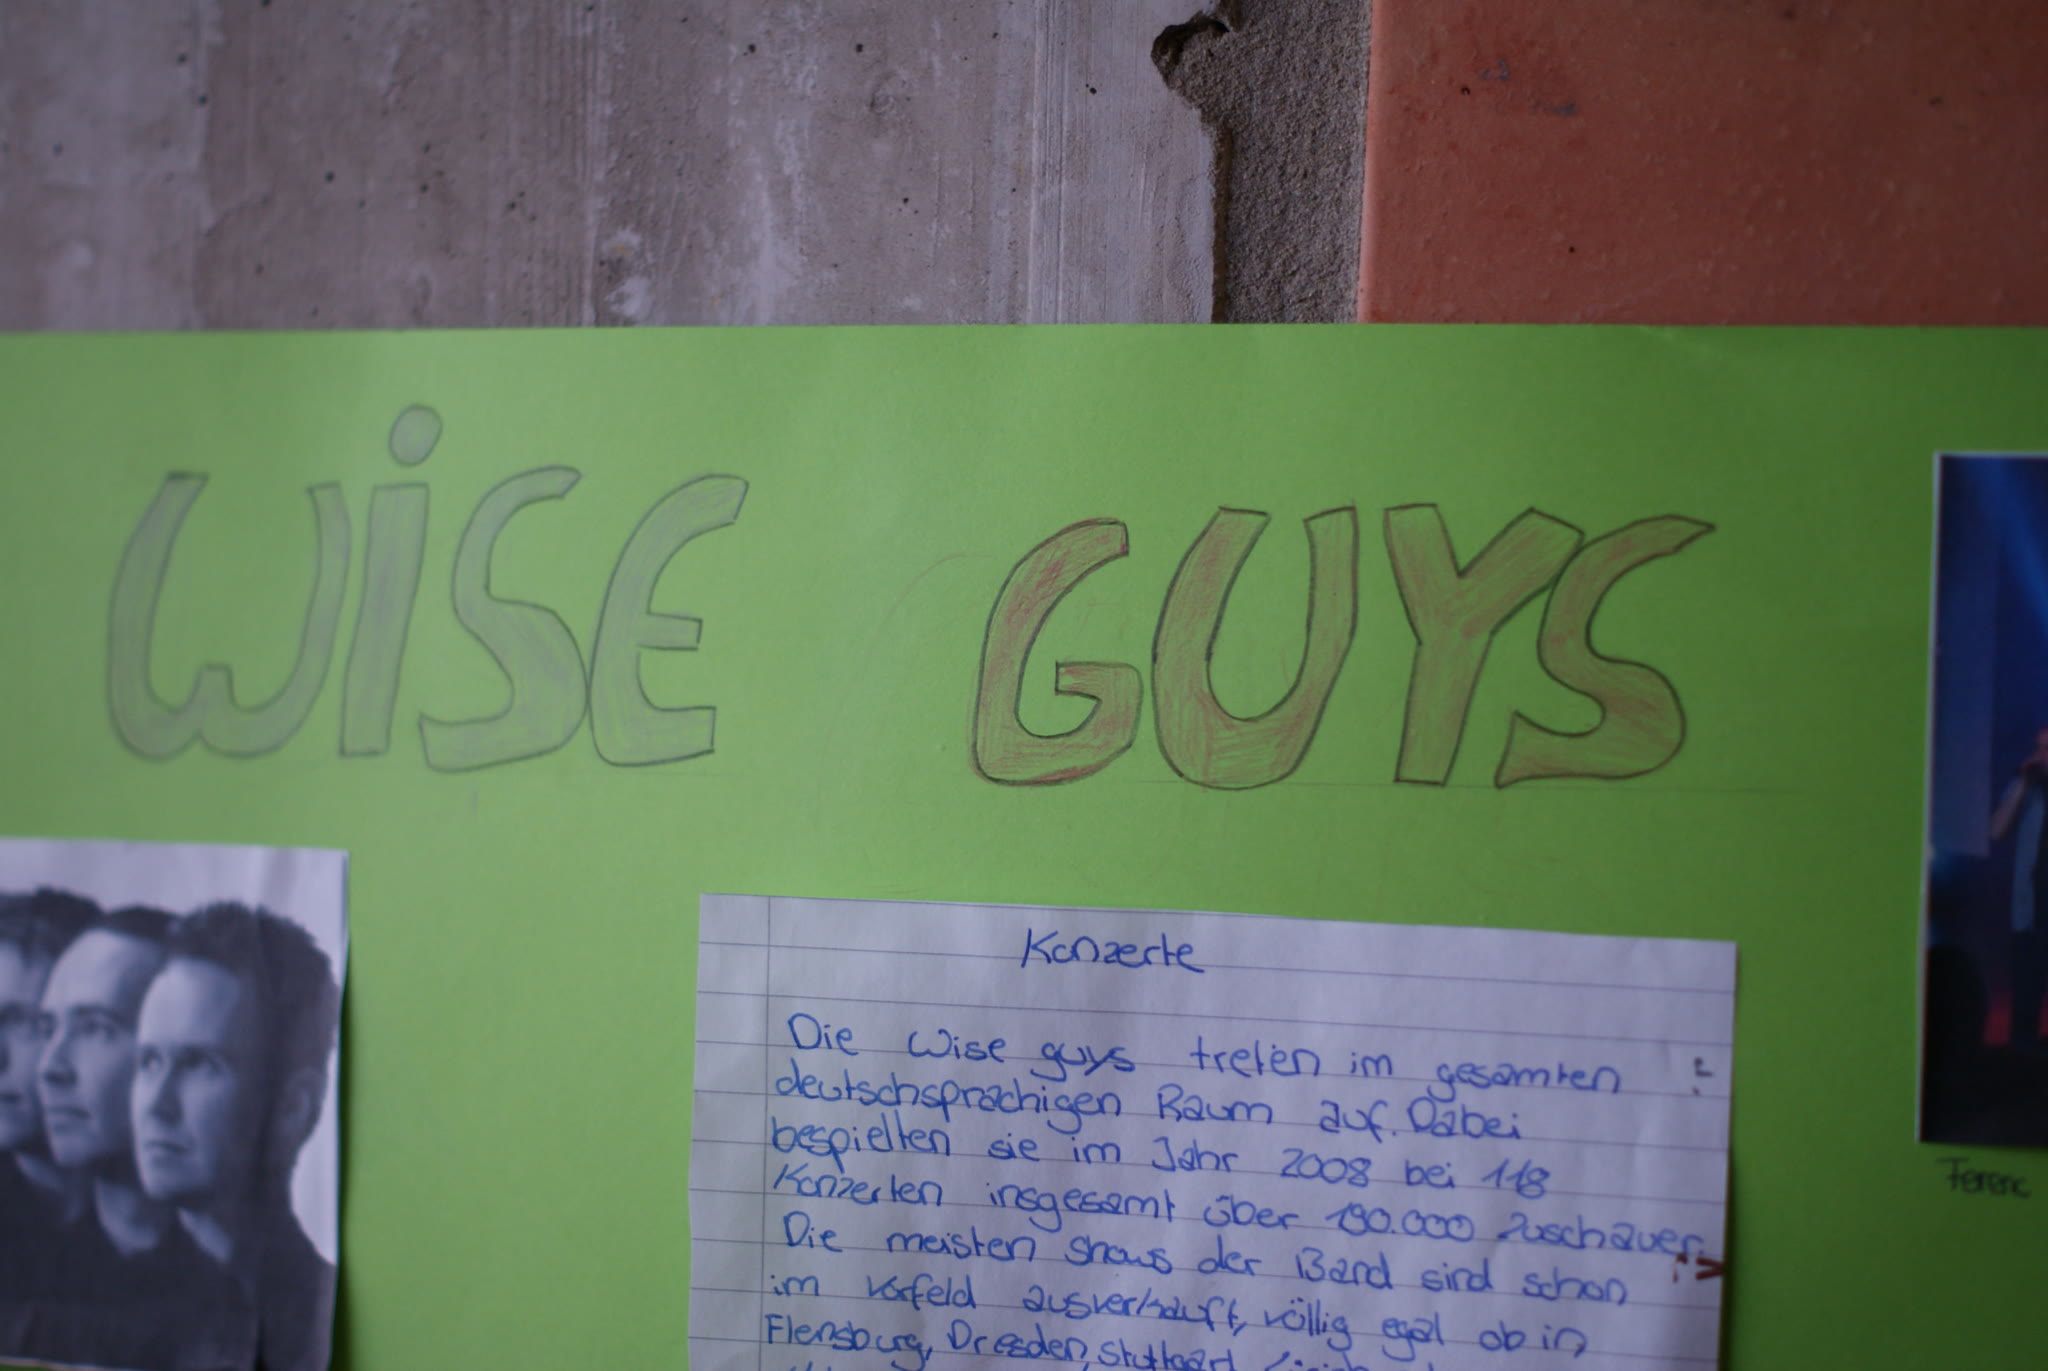 WiSE GUYS
Konzerte
Die Wise guys treten im gesamten
deutschsprachigen Raum auf. Dabei
bespielten sie im Jahr 2008 bei 118
Konzerten insgesamt über 190.000 Zuschauer.
Die meisten Shows der Band sind schon
im Vorfeld ausverkauft, völlig egal ob in
Flensburg, Dresden, Stuttgart,
Ferenc